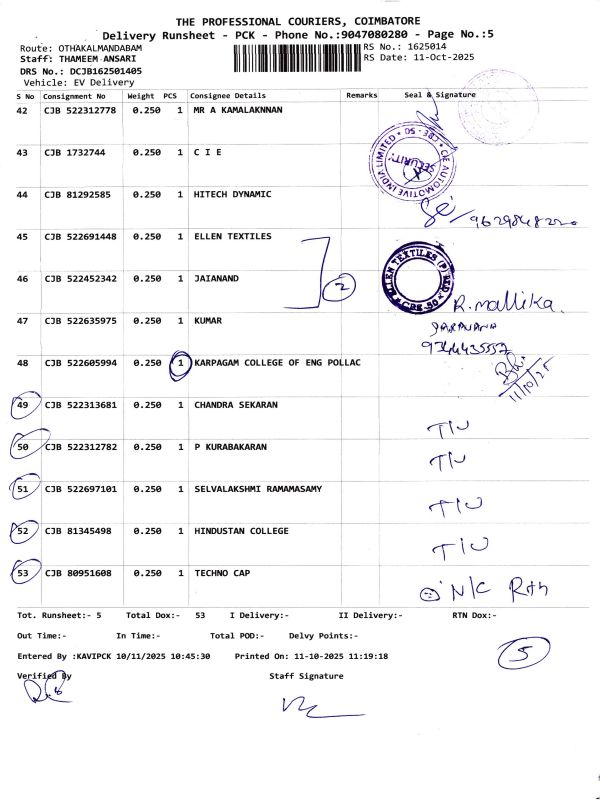 THE PROFESSIONAL COURIERS, COIMBATORE
Delivery Runsheet - PCK - Phone No.:9047080280 - Page No.:5
Route: OTHAKALMANDABAM RS No.: 1625014
Staff: THAMEEM ANSARI RS Date: 11-Oct-2025
DRS No.: DCJB162501405
Vehicle: EV Delivery
S No Consignment No Weight PCS Consignee Details Remarks Seal & Signature
42 CJB 522312778 0.250 1 MR A KAMALAKNNAN
43 CJB 1732744 0.250 1 C I E
CIE AUTOMOTIVE INDIA LIMITED * CBE-50 *
SECURITY
44 CJB 81292585 0.250 1 HITECH DYNAMIC
9629848220
45 CJB 522691448 0.250 1 ELLEN TEXTILES
ELLEN TEXTILES (P) LTD * CBE-50 *
46 CJB 522452342 0.250 1 JAIANAND
2
R. mallika.
47 CJB 522635975 0.250 1 KUMAR
SARAVANA
9344435557
48 CJB 522605994 0.250 1 KARPAGAM COLLEGE OF ENG POLLAC
11/10/25
49 CJB 522313681 0.250 1 CHANDRA SEKARAN
T/U
50 CJB 522312782 0.250 1 P KURABAKARAN
T/U
51 CJB 522697101 0.250 1 SELVALAKSHMI RAMAMASAMY
T/U
52 CJB 81345498 0.250 1 HINDUSTAN COLLEGE
T/U
53 CJB 80951608 0.250 1 TECHNO CAP
N/C Rtn
Tot. Runsheet:- 5 Total Dox:- 53 I Delivery:- II Delivery:- RTN Dox:-
Out Time:- In Time:- Total POD:- Delvy Points:-
Entered By :KAVIPCK 10/11/2025 10:45:30 Printed On: 11-10-2025 11:19:18
5
Verified By Staff Signature